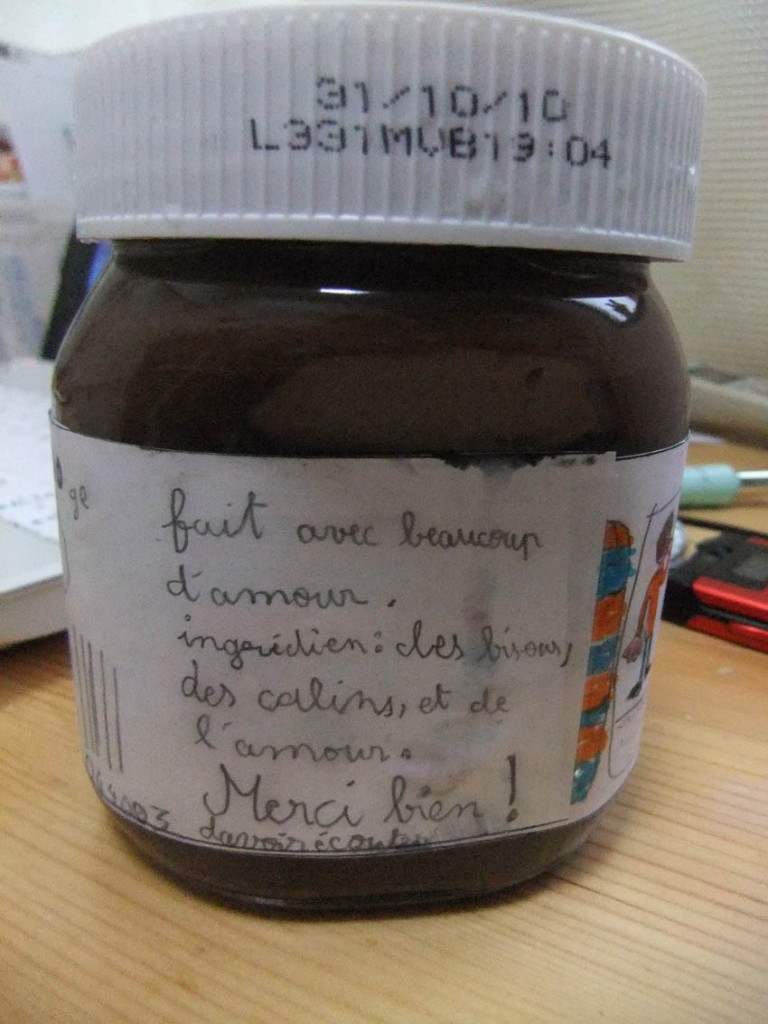 31/10/10
L331MVB19:04
ge
fait avec beaucoup
d'amour.
ingrédien: des bisous,
des calins, et de
l'amour.
Merci bien !
davoir écouter